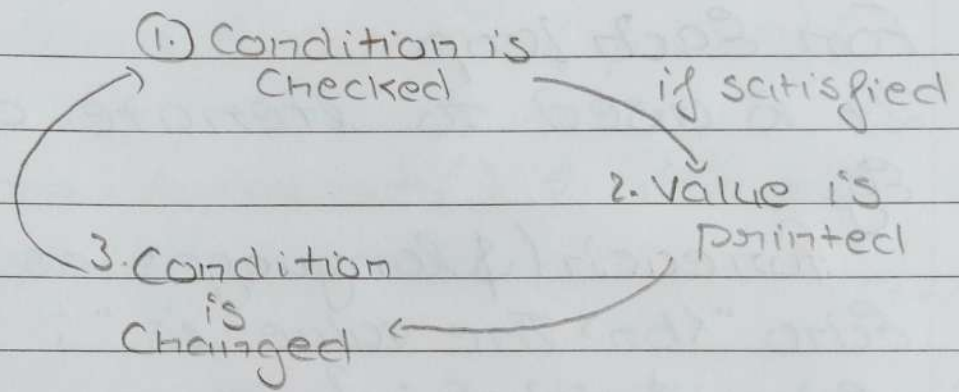 1. Condition is
Checked
if satisfied
2. Value is
printed
3. Condition
is
Changed